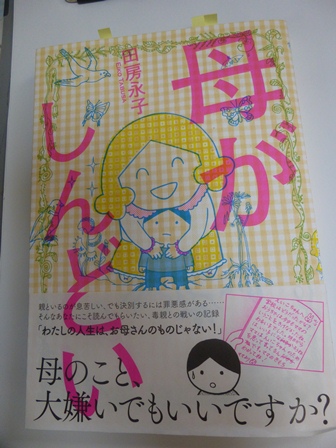 母が
しんどい
田房永子
親といるのが息苦しい、でも決別するには罪悪感がある……
そんなあなたにこそ読んでもらいたい、毒親との戦いの記録
「わたしの人生は、お母さんのものじゃない!」
母のこと、
大嫌いでもいいですか?